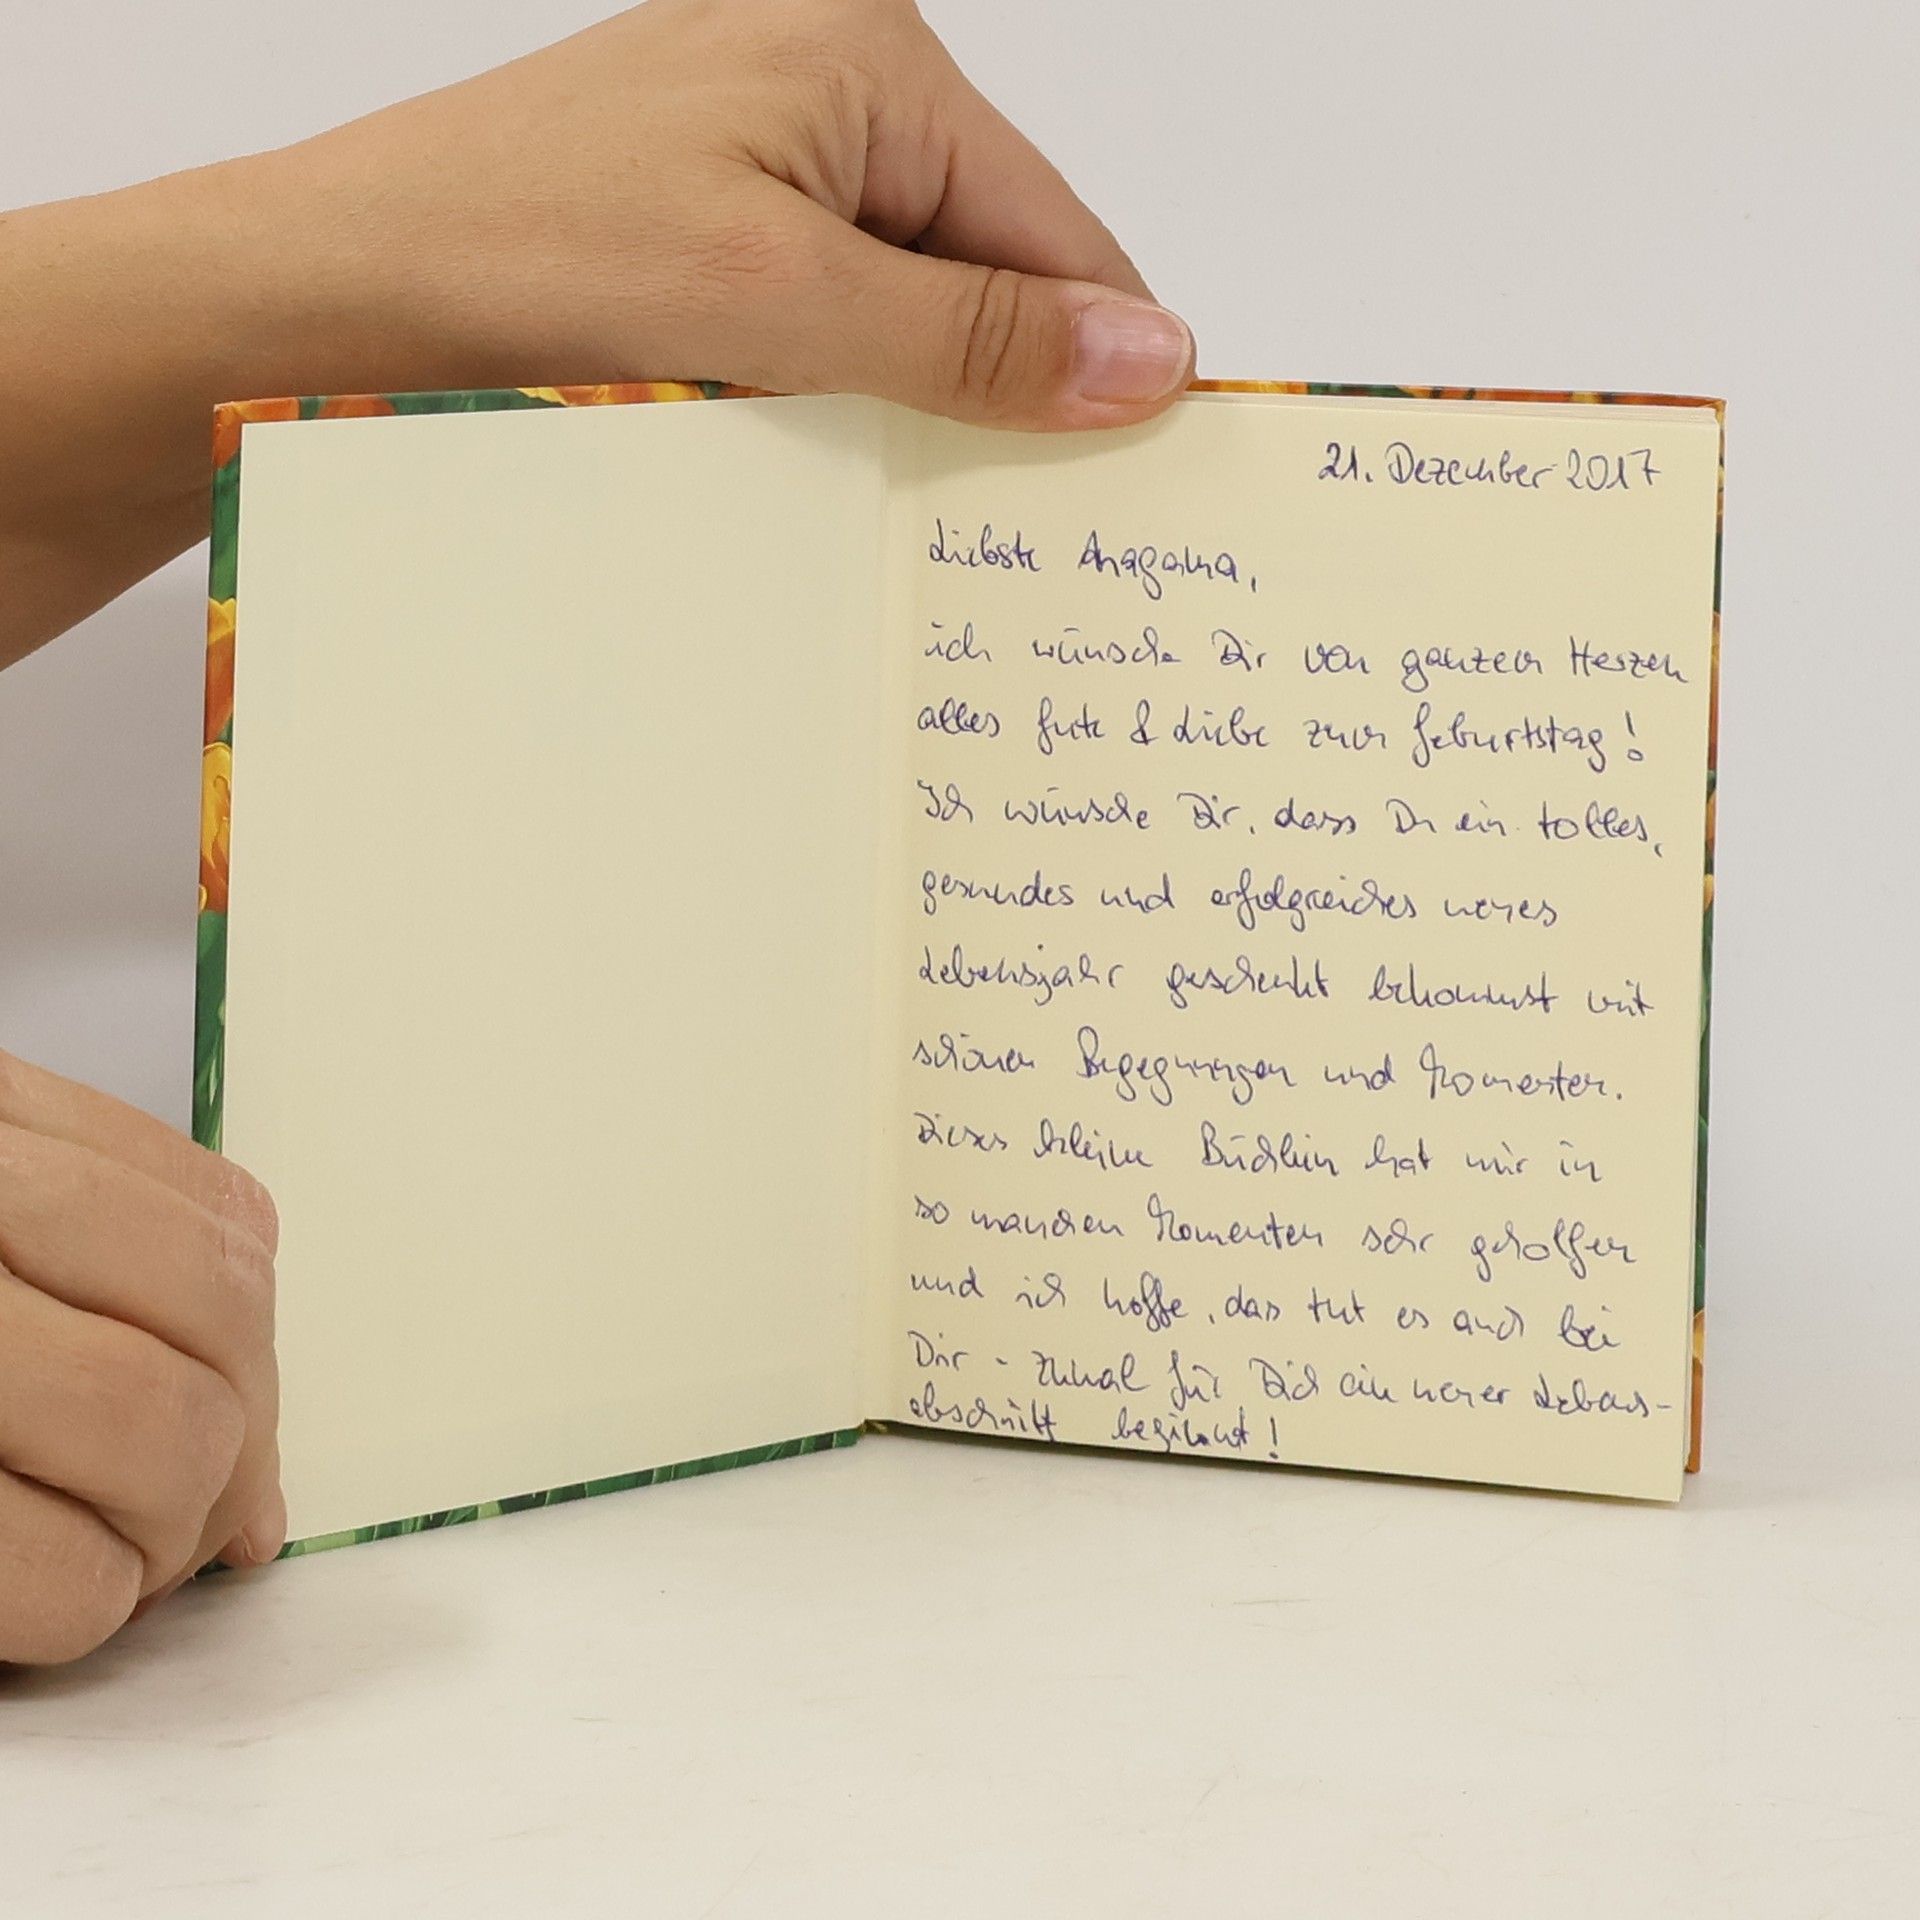 21. Dezember 2017
Liebste
ich wünsche Dir von ganzem Herzen
alles Gute & Liebe zum Geburtstag!
Ich wünsche Dir, dass Du ein tolles,
gesundes und erfolgreiches neues
Lebensjahr geschenkt bekommst mit
schönen Begegnungen und Momenten.
Dieses kleine Büchlein hat mir in
so manchen Momenten sehr geholfen
und ich hoffe, das tut es auch bei
Dir - zumal für Dich ein neuer Lebens-
abschnitt beginnt!